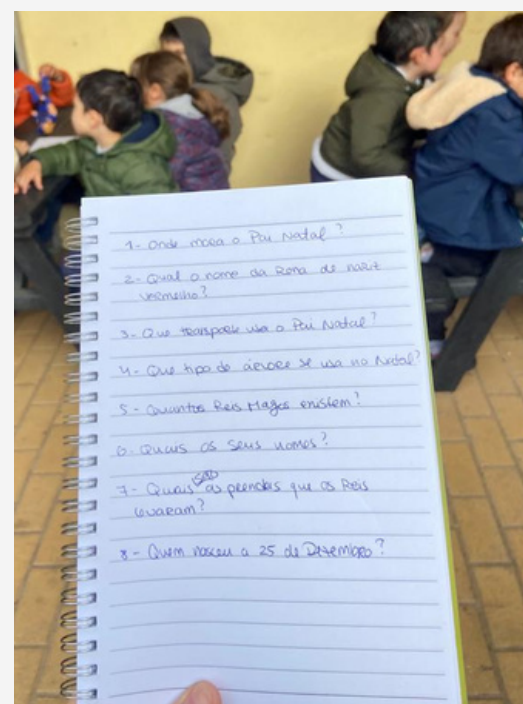 1- Onde mora o Pai Natal?
2- Qual o nome da Rena de nariz
vermelho?
3- Que transporte usa o Pai Natal?
4- Que tipo de árvore se usa no Natal?
5- Quantos Reis Magos existem?
6- Quais os seus nomes?
7- Quais são as prendas que os Reis
levaram?
8- Quem nasceu a 25 de Dezembro?